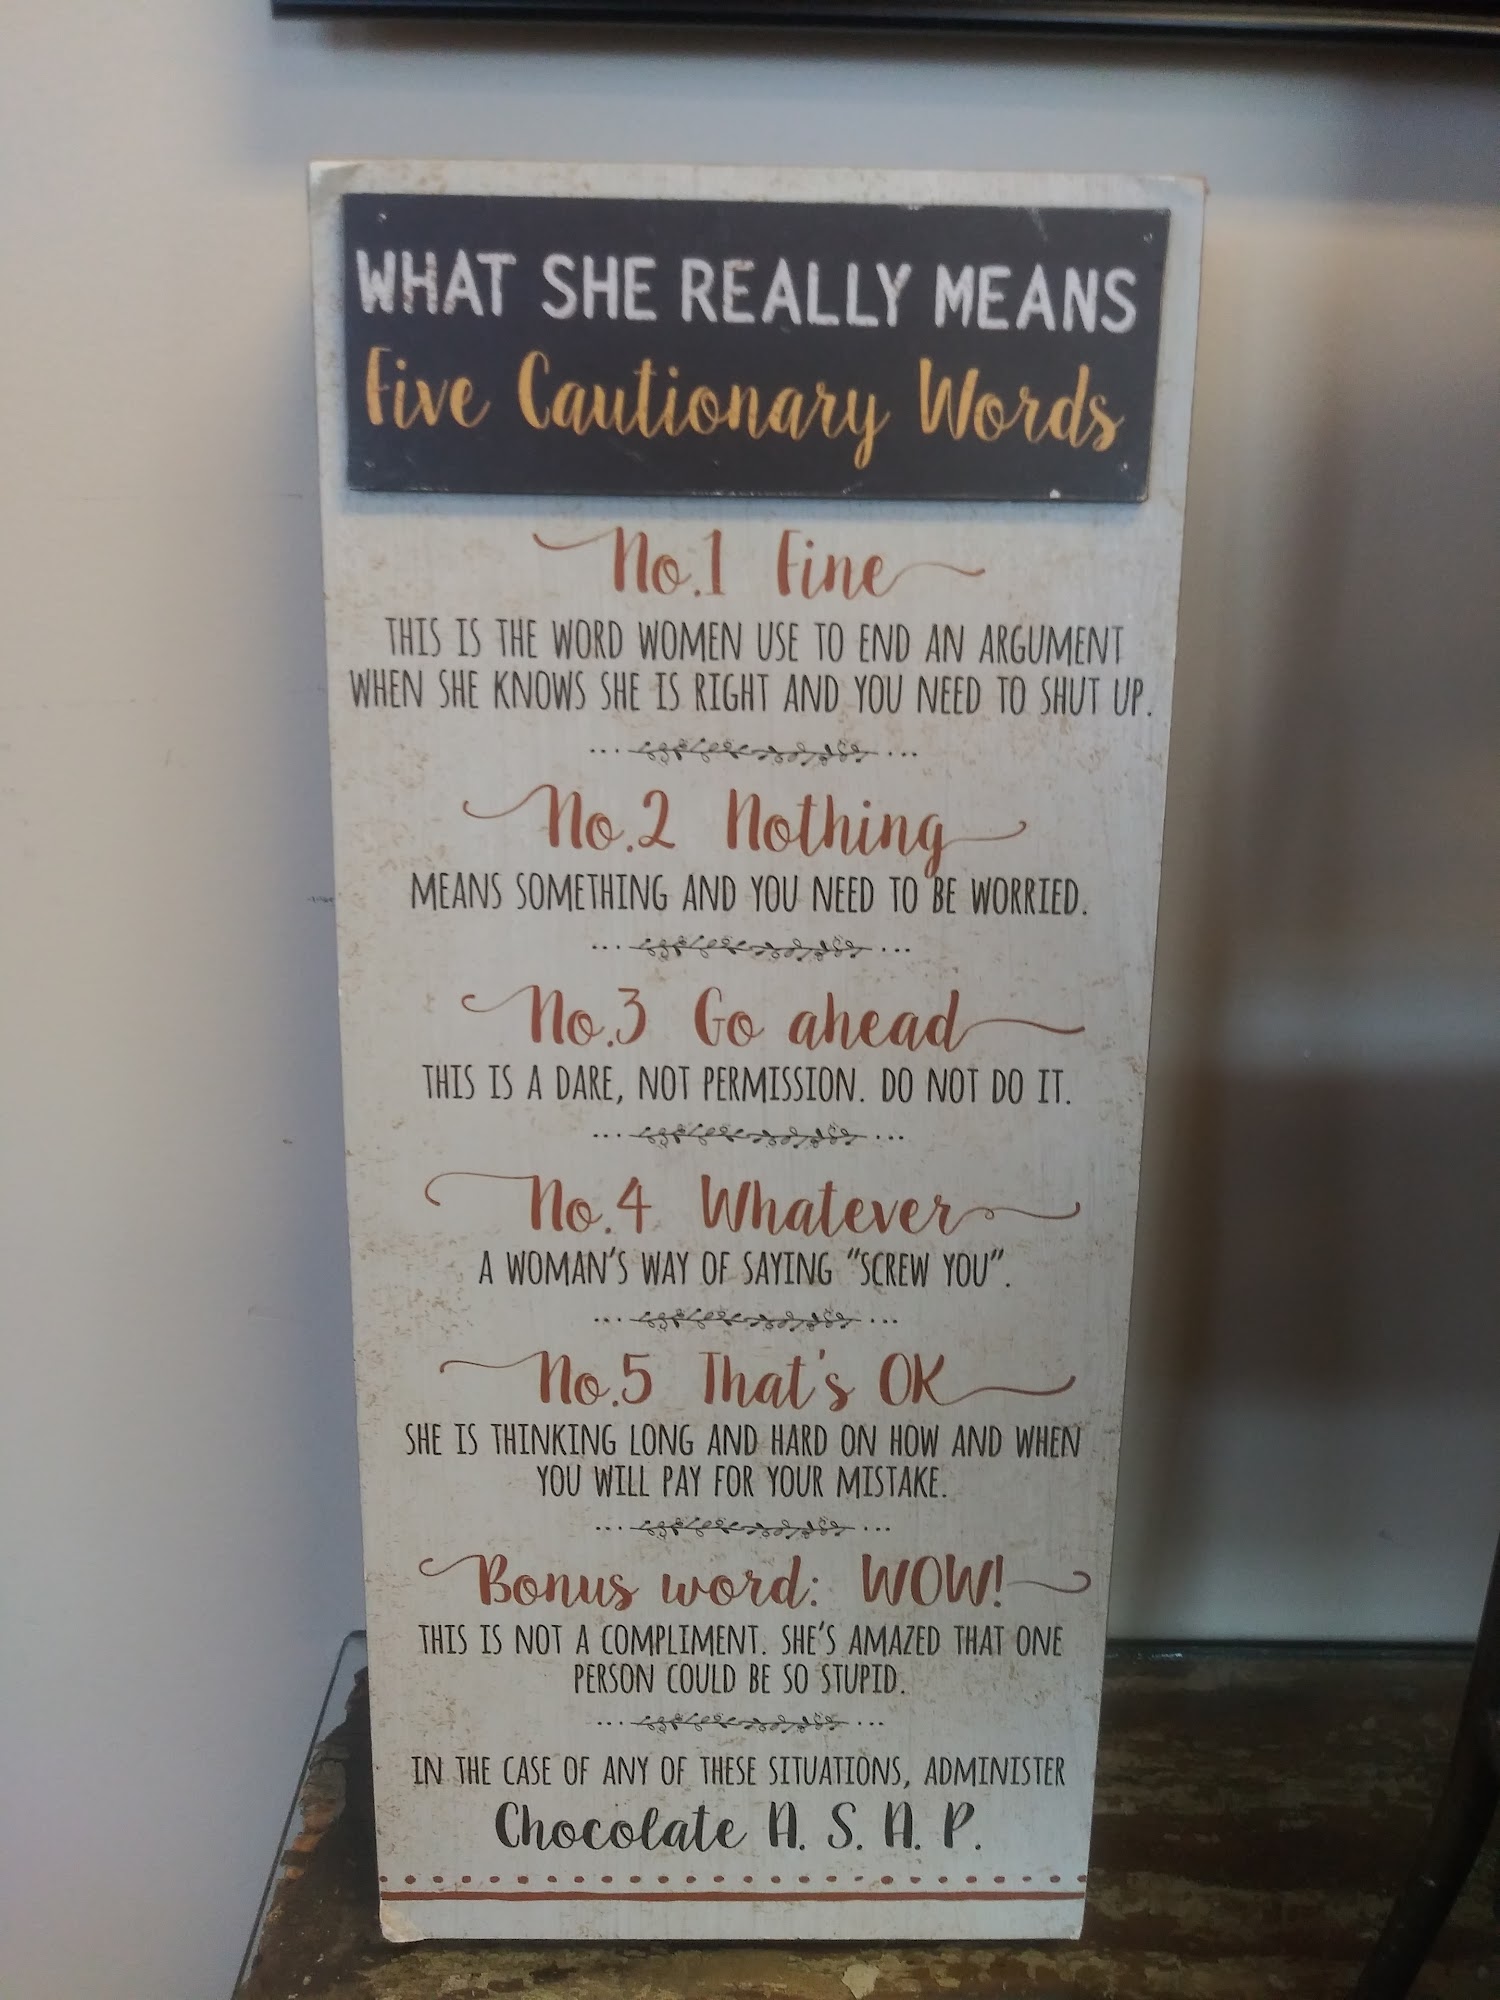 WHAT SHE REALLY MEANS
Five Cautionary Words
No.1 Fine
THIS IS THE WORD WOMEN USE TO END AN ARGUMENT
WHEN SHE KNOWS SHE IS RIGHT AND YOU NEED TO SHUT UP.
No.2 Nothing
MEANS SOMETHING AND YOU NEED TO BE WORRIED.
No.3 Go ahead
THIS IS A DARE, NOT PERMISSION. DO NOT DO IT.
No.4 Whatever
A WOMAN'S WAY OF SAYING "SCREW YOU".
No.5 That's OK
SHE IS THINKING LONG AND HARD ON HOW AND WHEN
YOU WILL PAY FOR YOUR MISTAKE.
Bonus word: WOW!
THIS IS NOT A COMPLIMENT. SHE'S AMAZED THAT ONE
PERSON COULD BE SO STUPID.
IN THE CASE OF ANY OF THESE SITUATIONS, ADMINISTER
Chocolate A. S. A. P.